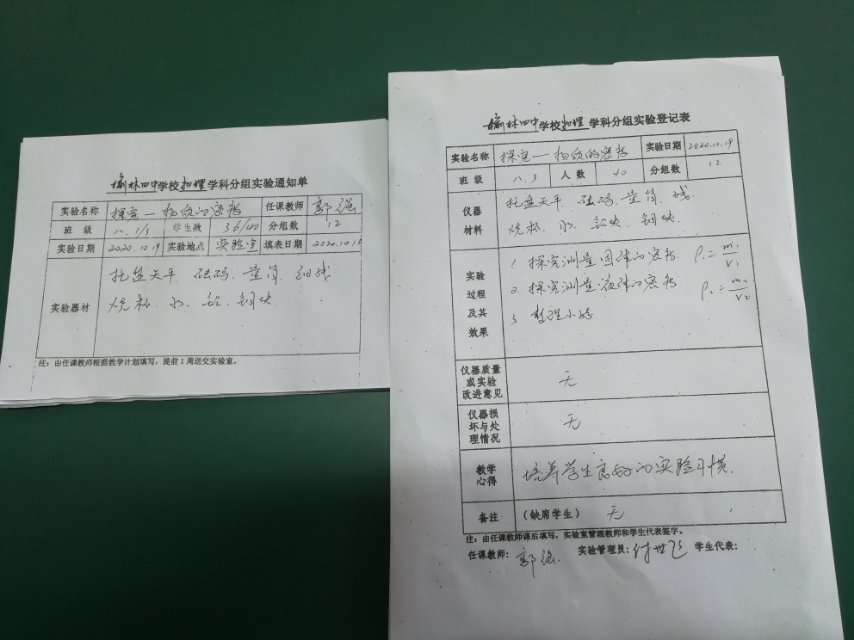 榆林四中学校物理学科分组实验通知单
实验名称 探究一物质的密度 任课教师 郭强
班级 八.1/3 学生数 36/40 分组数 12
实验日期 2020.10.19 实验地点 实验室 填表日期
实验器材 托盘天平 砝码 量筒 细线
烧杯 水 铝 铜块
注：由任课教师根据教学计划填写，提前1周送交实验室。
榆林四中学校物理学科分组实验登记表
实验名称 探究一物质的密度 实验日期 2020.10.19
班级 八.3 人数 40 分组数 12
仪器材料 托盘天平 砝码 量筒 线
烧杯 水 铝块 铜块
实验过程及其效果 1 探究测量固体的密度 ρ₁=m₁/V₁
2 探究测量液体的密度 ρ₂=m₂/V₂
3 整理小结
仪器质量或实验改进意见 无
仪器损坏与处理情况 无
教学心得 培养学生良好的实验习惯.
备注 （缺席学生） 无
注：由任课教师课后填写，实验室管理教师和学生代表签字。
任课教师：郭强 实验管理员：付世飞 学生代表：